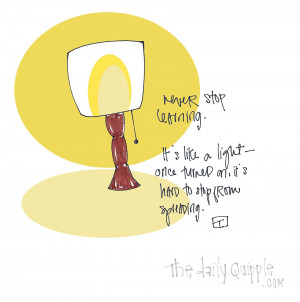 never stop
learning.
It's like a light—
once turned on, it's
HARD to stop from
spreading.
The daily Quipple
.com